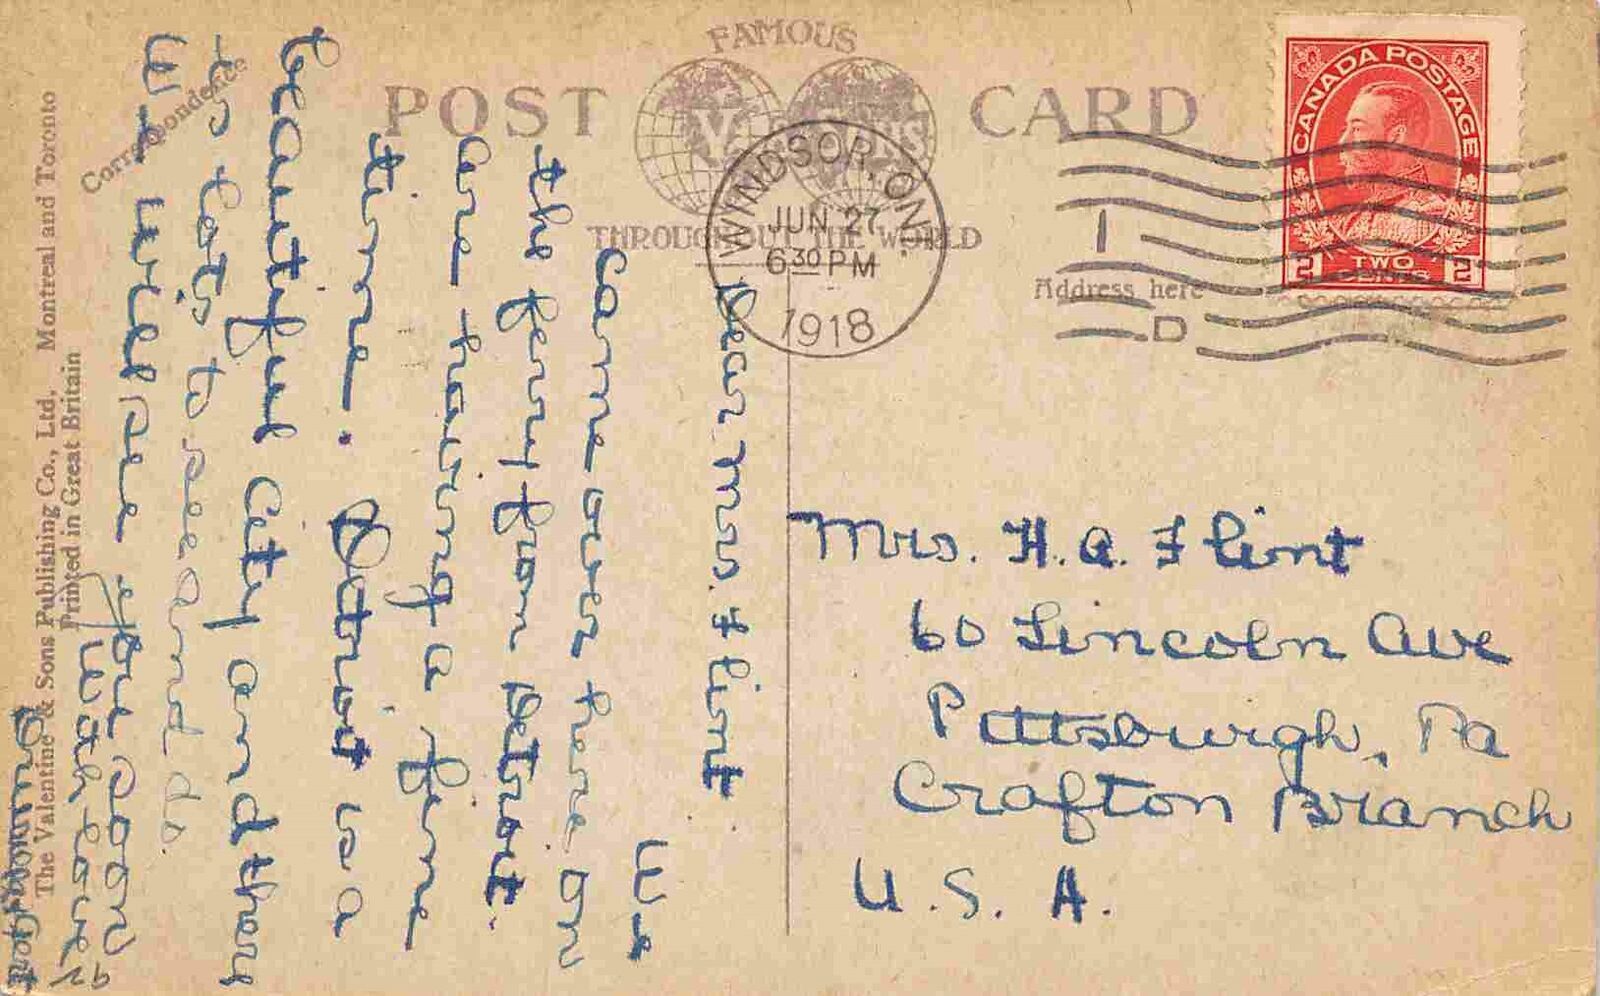 FAMOUS
POST CARD
THROUGHOUT THE WORLD
WINDSOR, ONT.
JUN 27
6 30 PM
1918
I
D
CANADA POSTAGE
2 TWO CENTS 2
Address here
Correspondence
The Valentine & Sons Publishing Co., Ltd. Montreal and Toronto
Printed in Great Britain
Dear Mrs. Flint
We
came over here on
the ferry from Detroit.
are having a fine
time. Detroit is a
beautiful city and there
is lots to see and do.
We will see you soon
With love
Mrs. H. A. Flint
60 Lincoln Ave
Pittsburgh, Pa
Crafton Branch
U. S. A.